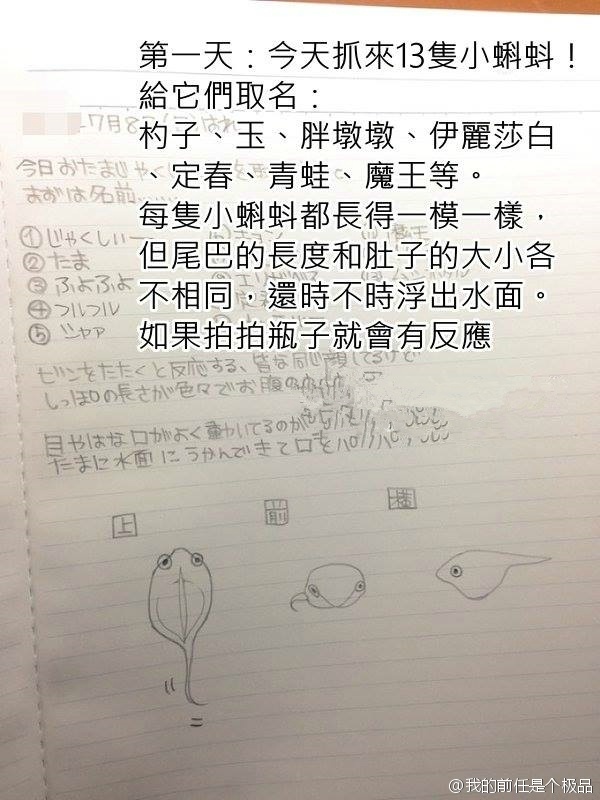 第一天：今天抓來13隻小蝌蚪！
給它們取名：
杓子、玉、胖墩墩、伊麗莎白
、定春、青蛙、魔王等。
每隻小蝌蚪都長得一模一樣，
但尾巴的長度和肚子的大小各
不相同，還時不時浮出水面。
如果拍拍瓶子就會有反應
7月8日
今日おたまじゃくし
まずは名前
①じゃくしぃー
②たま
③ふよふよ
④フルフル
⑤ジャァ
ビンをたたくと反応する、皆な同じ顔してるけど
しっぽの長さが色々でお腹の
目やはな口がよく動いてるのが
たまに水面にうかんできて口をパクパク
上
前
横
@我的前任是个极品